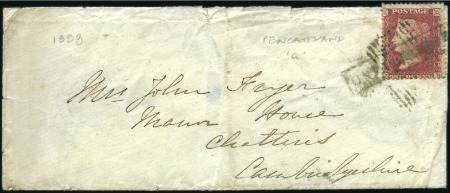 1859
PENCAITLAND
"G"
POSTAGE
Mrs John Fryer
Manor House
Chatteris
Cambridgeshire